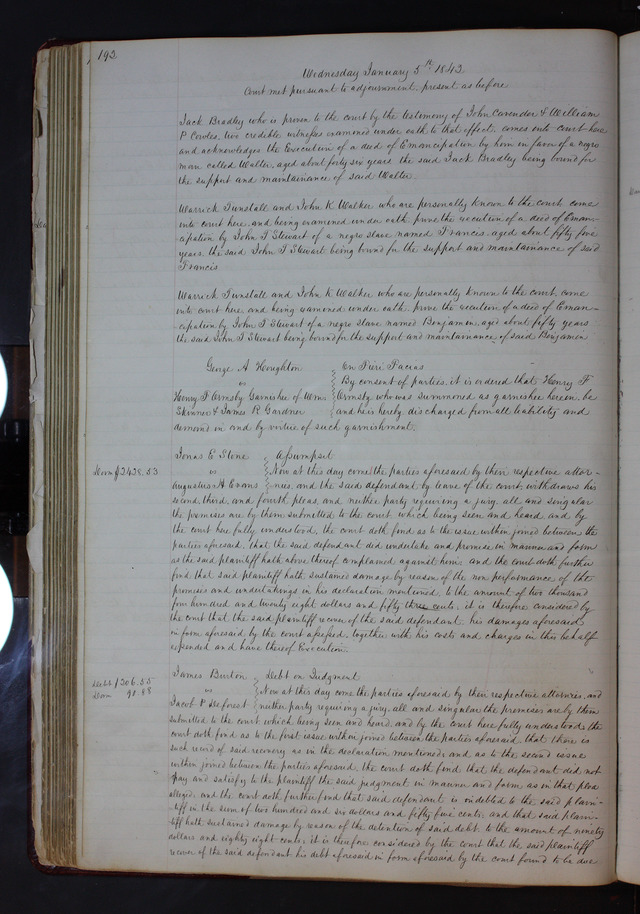 192
Wednesday January 5th 1842
Court met pursuant to adjournment, present as before
Jack Bradley who is proven to the court by the testimony of John Cavender & William
P Cowles, two credible witnesses examined under oath to that effect, comes into court here
and acknowledges the Execution of a deed of Emancipation by him in favor of a negro
man called Walter, aged about forty six years the said Jack Bradley being bound for
the support and maintainance of said Walter
Warrick Tunstall and John K Walker who are personally known to the court come
into court here and being examined under oath, prove the execution of a deed of Eman-
cipation by John T Stewart of a negro slave named Francis, aged about fifty five
years, the said John T Stewart being bound for the support and maintainance of said
Francis
Warrick Tunstall and John K Walker who are personally known to the court, come
into court here, and being examined under oath, prove the execution of a deed of Eman-
cipation by John T Stewart of a negro slave named Benjamin, aged about fifty years
the said John T Stewart being bound for the support and maintainance, of said Benjamin
George A Houghton On Fieri Facias
vs By consent of parties, it is ordered that Henry F
Henry F Ormsby Garnishee of Wm Ormsby who was summoned as garnishee herein be
Skinner & James R Gardner and he is hereby discharged from all liability and
demand in and by virtue of such garnishment.
Jonas E Stone Assumpsit
Dam $2428.53 vs Now at this day come the parties aforesaid by their respective attor-
Augustus H Evans nies, and the said defendant by leave of the court, withdraws his
second, third, and fourth pleas, and neither party requiring a jury, all and singular
the premises are by them submitted to the court which being seen and heard and by
the court here fully understood, the court doth find as to the issue within joined between the
parties aforesaid, that the said defendant did undertake and promise in manner and form
as the said plaintiff hath above thereof complained against him: and the court doth further
find that said plaintiff hath sustained damage by reason of the non performance of the
promises and undertakings in his declaration mentioned, to the amount of two thousand
four hundred and twenty eight dollars and fifty three cents, it is therefore considered by
the court that the said plaintiff recover of the said defendant his damages aforesaid
in form aforesaid, by the court assessed, together with his costs and charges in this behalf
expended and have thereof Execution.
James Burton Debt on Judgment
Debt $206.55 vs Now at this day come the parties aforesaid by their respective attornies, and
Dam 91.88 Jacob P Deforest neither party requiring a jury, all and singular the premises are by them
submitted to the court which being seen and heard, and by the court here fully understood, the
court doth find as to the first issue within joined between the parties aforesaid, that there is
such record of said recovery as in the declaration mentioned; and as to the second issue
within joined between the parties aforesaid, the court doth find that the defendant did not
pay and satisfy to the plaintiff the said judgment in manner and form as in that plea
alleged, and the court doth further find that said defendant is indebted to the said plain-
tiff in the sum of two hundred and six dollars and fifty five cents, and that said plain-
tiff hath sustained damage by reason of the detention of said debt to the amount of ninety
dollars and eighty eight cents, it is therefore considered by the court that the said plaintiff
recover of the said defendant his debt aforesaid in form aforesaid by the court found to be due